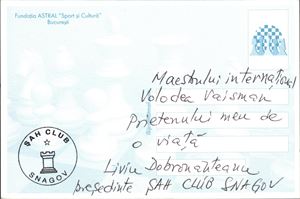 Fundația ASTRAL "Sport și Cultură"
București
Maestrului internațional
Volodea Vaisman
Prietenului meu de
o viață
Liviu Dobronauteanu
președinte ȘAH CLUB SNAGOV
ȘAH CLUB
SNAGOV